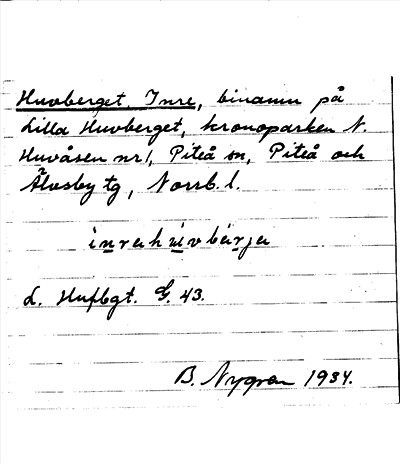 Huvberget, Inre, binamn på
Lilla Huvberget, kronoparken N.
Huvåsen nr 1, Piteå sn, Piteå och
Älvsby tg, Norrb. l.
inrahuvbärja
L. Hufbgt. G. 43.
B. Nygren 1934.